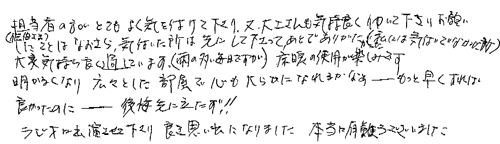 担当者の方がとてもよく気を付けて下り、又、大工さんも気持良くゆいて下さりお願い
(住田さま)
したことはなおさら、気付いた所は先にして下さってあとでありがたか(私には気がつかなかった所)
大変気持ち良く過しています。(雨の多い毎日ですが) 床暖の使用が楽しみです
明かるくなり 広々とした 部屋で 心も大らかになれるかなす ── もっと早くすれば
良かったのに ── 後悔先に立たず!!
ラジオに出演させて下り 良き思い出になりました 本当に有難うございました